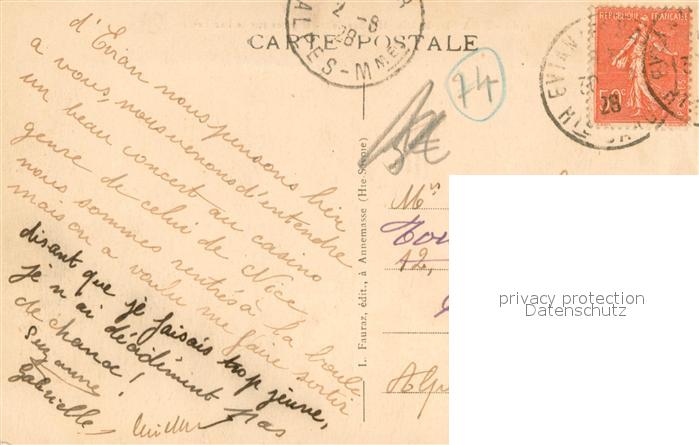 CARTE POSTALE
2 -8
28
ALPES-Mmes
74
EVIAN
28
Hte SAVOIE
REPUBLIQUE FRANÇAISE
50c
POSTES
d'Evian nous pensons bien
a vous, nous venons d'entendre
un beau concert au casino
genre de celui de Nice
nous sommes rentrés à la boule
mais on a voulu me faire sortir
disant que je faisais trop jeune,
je n'ai décidément pas
de chance!
Suzanne
Gabrielle
L. Fauraz, édit., à Annemasse (Hte-Savoie)
5€
Ms
12,
Alp
privacy protection
Datenschutz